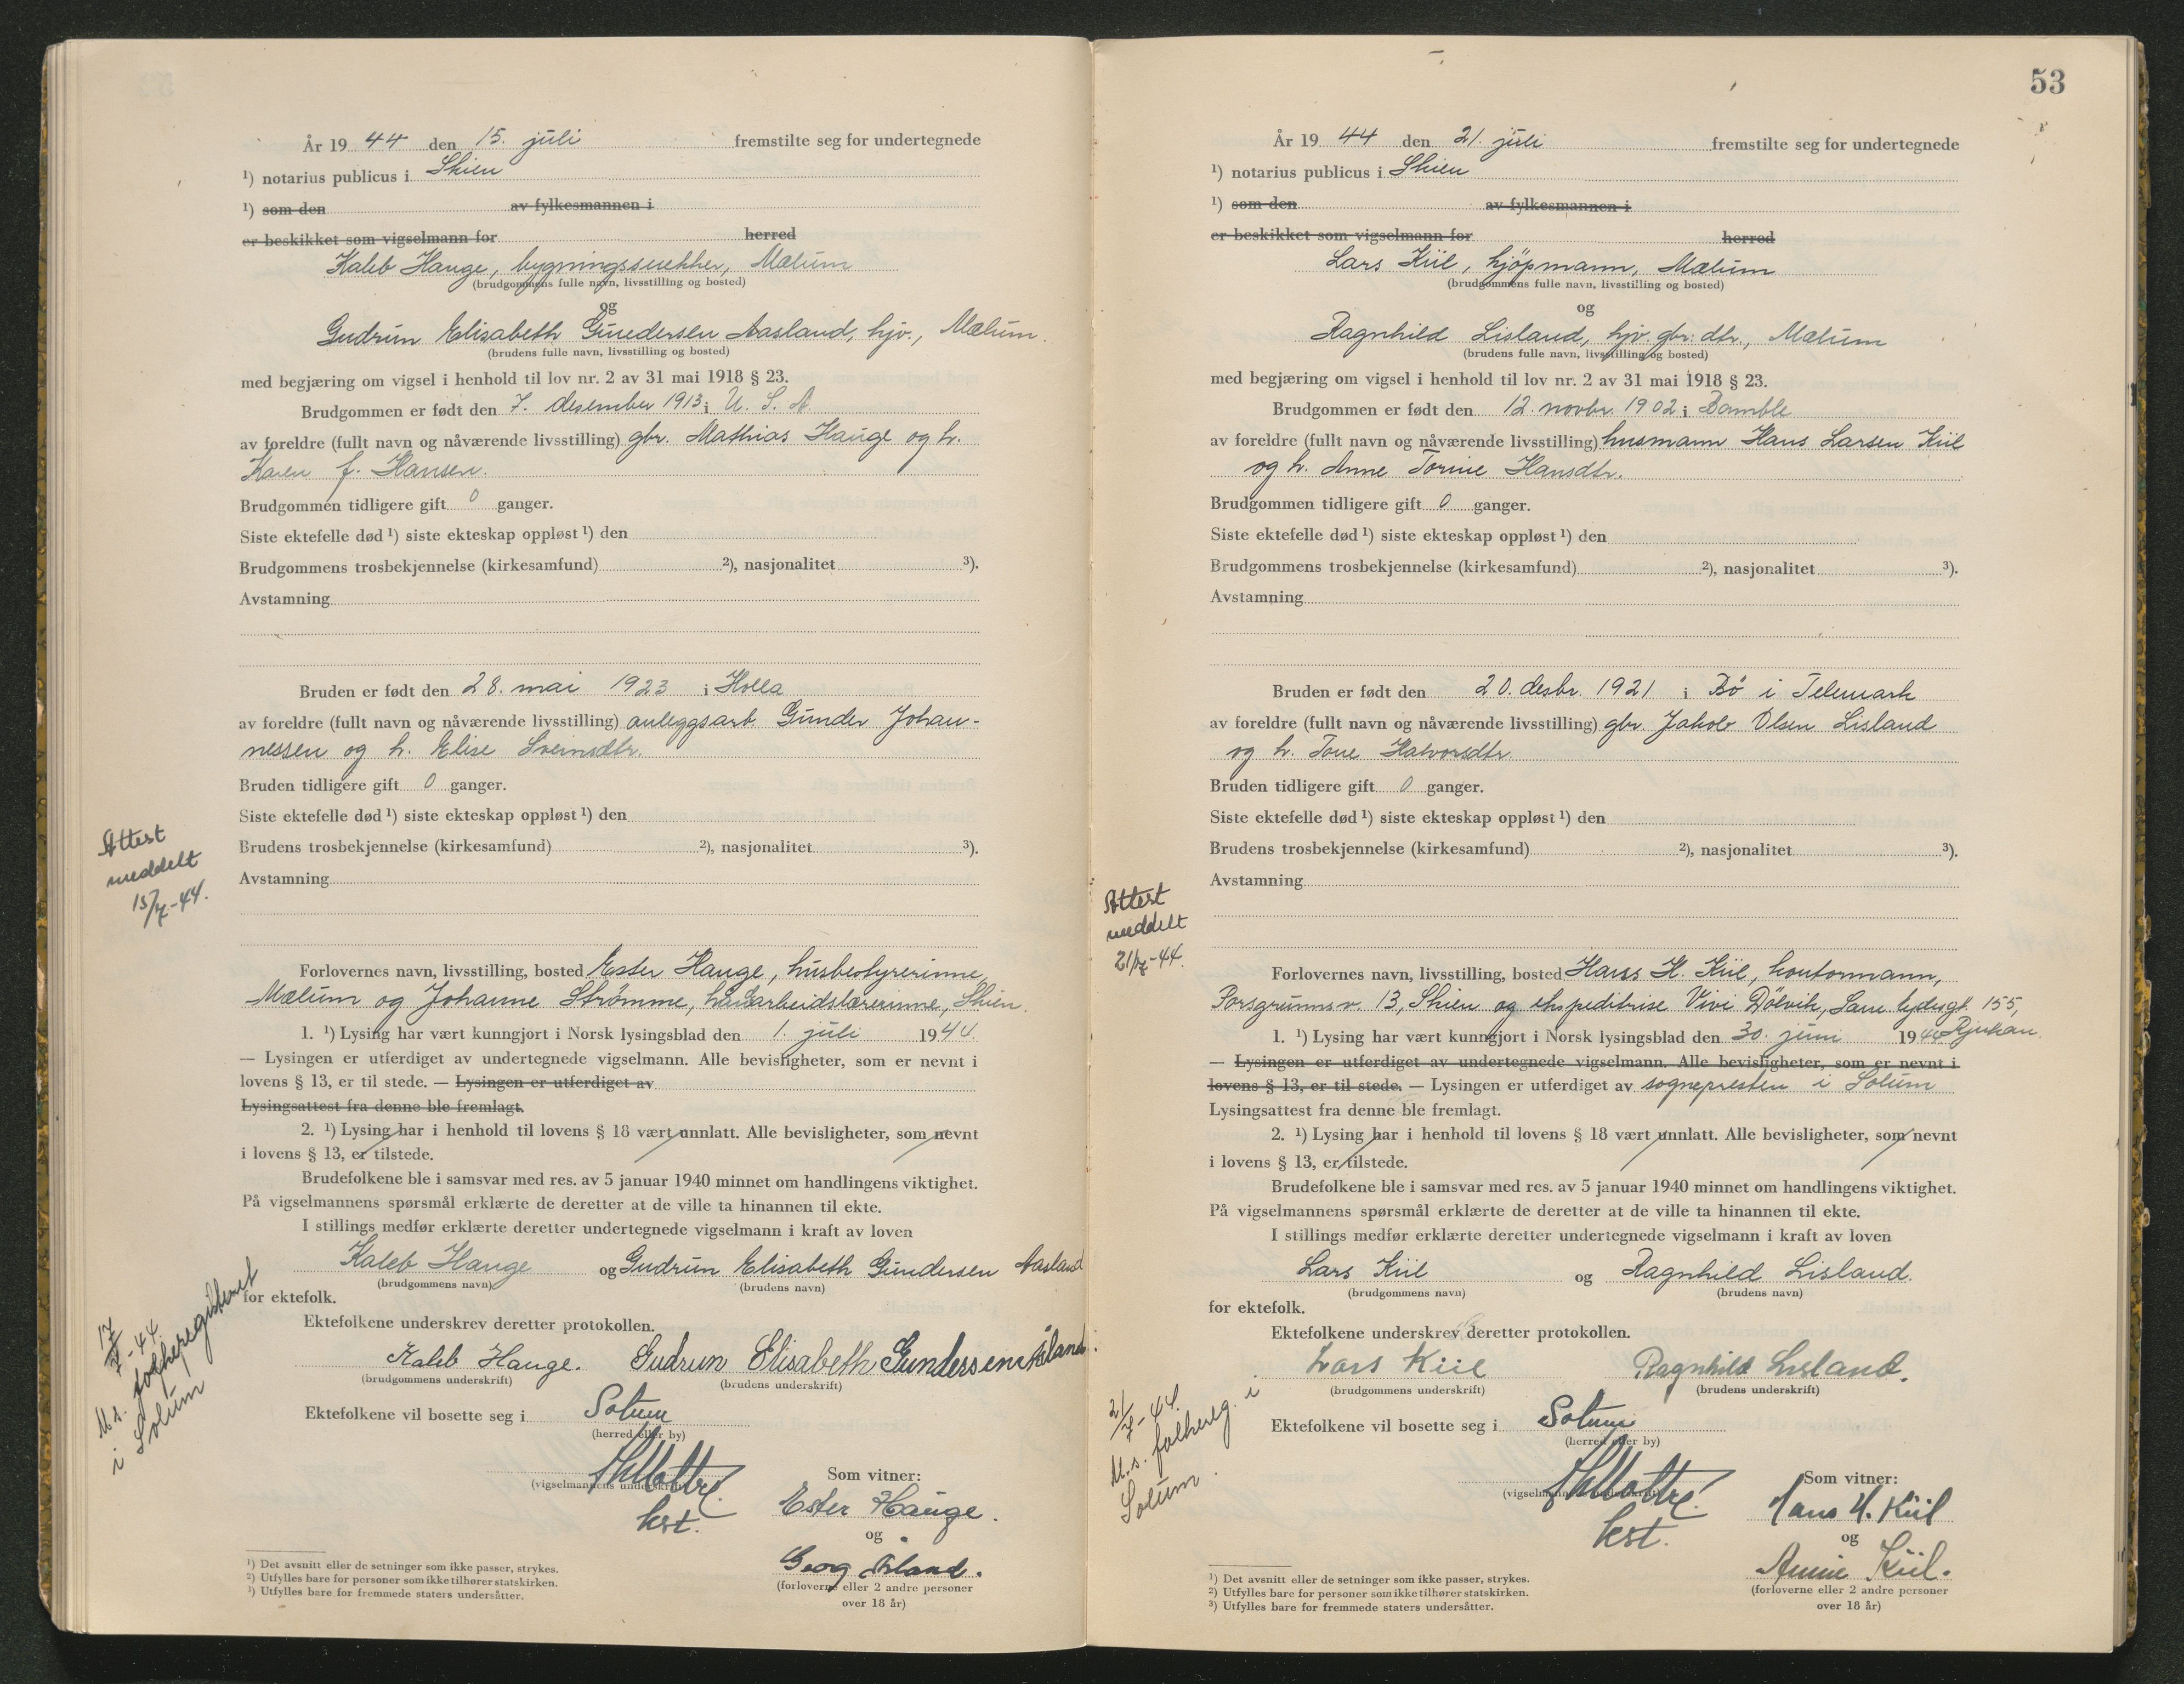 År 19 44 den 15. juli fremstilte seg for undertegnede
¹) notarius publicus i Skien
¹) som den av fylkesmannen i
er beskikket som vigselmann for herred
Kaleb Hauge, bygningssnekker, Mælum
(brudgommens fulle navn, livsstilling og bosted)
og
Gudrun Elisabeth Gundersen Aasland, hjv., Mælum.
(brudens fulle navn, livsstilling og bosted)
med begjæring om vigsel i henhold til lov nr. 2 av 31 mai 1918 § 23.
Brudgommen er født den 7. desember 1913 i U. S. A
av foreldre (fullt navn og nåværende livsstilling) gbr. Mathias Hauge og h.
Karen f. Hansen.
Brudgommen tidligere gift 0 ganger.
Siste ektefelle død ¹) siste ekteskap oppløst ¹) den
Brudgommens trosbekjennelse (kirkesamfund) ²), nasjonalitet ³).
Avstamning
Bruden er født den 28. mai 1923 i Holla
av foreldre (fullt navn og nåværende livsstilling) anleggsarb. Gunder Johan-
nessen og h. Elise Sveinsdtr.
Bruden tidligere gift 0 ganger.
Siste ektefelle død ¹) siste ekteskap oppløst ¹) den
Attest
meddelt
15/7-44.
Brudens trosbekjennelse (kirkesamfund) ²), nasjonalitet ³).
Avstamning
Forlovernes navn, livsstilling, bosted Ester Hauge, husbestyrerinne,
Mælum og Johanne Strømme, håndarbeidslærerinne, Skien.
1. ¹) Lysing har vært kunngjort i Norsk lysingsblad den 1. juli 1944.
— Lysingen er utferdiget av undertegnede vigselmann. Alle bevisligheter, som er nevnt i
lovens § 13, er til stede. — Lysingen er utferdiget av
Lysingsattest fra denne ble fremlagt.
2. ¹) Lysing har i henhold til lovens § 18 vært unnlatt. Alle bevisligheter, som nevnt
i lovens § 13, er tilstede.
Brudefolkene ble i samsvar med res. av 5 januar 1940 minnet om handlingens viktighet.
På vigselmannens spørsmål erklærte de deretter at de ville ta hinannen til ekte.
I stillings medfør erklærte deretter undertegnede vigselmann i kraft av loven
Kaleb Hauge og Gudrun Elisabeth Gundersen Aasland
(brudgommens navn) (brudens navn)
for ektefolk.
Ektefolkene underskrev deretter protokollen.
Kaleb Hauge. Gudrun Elisabeth Gundersen Åsland.
(brudgommens underskrift) (brudens underskrift)
17/7-44
M.s. folkeregisteret
i Solum
Ektefolkene vil bosette seg i Solum
(herred eller by)
(vigselmannens underskrift)
kst.
Som vitner:
Ester Hauge.
og
Georg Åsland.
(forloverne eller 2 andre personer
over 18 år)
¹) Det avsnitt eller de setninger som ikke passer, strykes.
²) Utfylles bare for personer som ikke tilhører statskirken.
³) Utfylles bare for fremmede staters undersåtter.
53
År 19 44 den 21. juli fremstilte seg for undertegnede
¹) notarius publicus i Skien
¹) som den av fylkesmannen i
er beskikket som vigselmann for herred
Lars Kiil, kjöpmann, Mælum
(brudgommens fulle navn, livsstilling og bosted)
og
Ragnhild Lisland, hjv. gbr. dtr., Mælum
(brudens fulle navn, livsstilling og bosted)
med begjæring om vigsel i henhold til lov nr. 2 av 31 mai 1918 § 23.
Brudgommen er født den 12. novbr. 1902 i Bamble
av foreldre (fullt navn og nåværende livsstilling) husmann Hans Larsen Kiil
og h. Anne Torine Hansdtr.
Brudgommen tidligere gift 0 ganger.
Siste ektefelle død ¹) siste ekteskap oppløst ¹) den
Brudgommens trosbekjennelse (kirkesamfund) ²), nasjonalitet ³).
Avstamning
Bruden er født den 20. desbr. 1921 i Bö i Telemark
av foreldre (fullt navn og nåværende livsstilling) gbr. Jakob Olsen Lisland
og h. Tone Halvorsdtr.
Bruden tidligere gift 0 ganger.
Siste ektefelle død ¹) siste ekteskap oppløst ¹) den
Brudens trosbekjennelse (kirkesamfund) ²), nasjonalitet ³).
Avstamning
Attest
meddelt
21/7-44.
Forlovernes navn, livsstilling, bosted Hans H. Kiil, kontormann,
Porsgrunnsv. 13, Skien og ekspeditrise Vivi Dölvik, Sam Eydesgt. 155,
Rjukan.
1. ¹) Lysing har vært kunngjort i Norsk lysingsblad den 30. juni 1944
— Lysingen er utferdiget av undertegnede vigselmann. Alle bevisligheter, som er nevnt i
lovens § 13, er til stede. — Lysingen er utferdiget av sognepresten i Solum
Lysingsattest fra denne ble fremlagt.
2. ¹) Lysing har i henhold til lovens § 18 vært unnlatt. Alle bevisligheter, som nevnt
i lovens § 13, er tilstede.
Brudefolkene ble i samsvar med res. av 5 januar 1940 minnet om handlingens viktighet.
På vigselmannens spørsmål erklærte de deretter at de ville ta hinannen til ekte.
I stillings medfør erklærte deretter undertegnede vigselmann i kraft av loven
Lars Kiil og Ragnhild Lisland.
(brudgommens navn) (brudens navn)
for ektefolk.
Ektefolkene underskrev deretter protokollen.
Lars Kiil Ragnhild Lisland.
(brudgommens underskrift) (brudens underskrift)
21/7-44.
M.s. folkereg. i
Solum.
Ektefolkene vil bosette seg i Solum
(herred eller by)
(vigselmannens underskrift)
kst.
Som vitner:
Hans H. Kiil
og
Annie Kiil.
(forloverne eller 2 andre personer
over 18 år)
¹) Det avsnitt eller de setninger som ikke passer, strykes.
²) Utfylles bare for personer som ikke tilhører statskirken.
³) Utfylles bare for fremmede staters undersåtter.